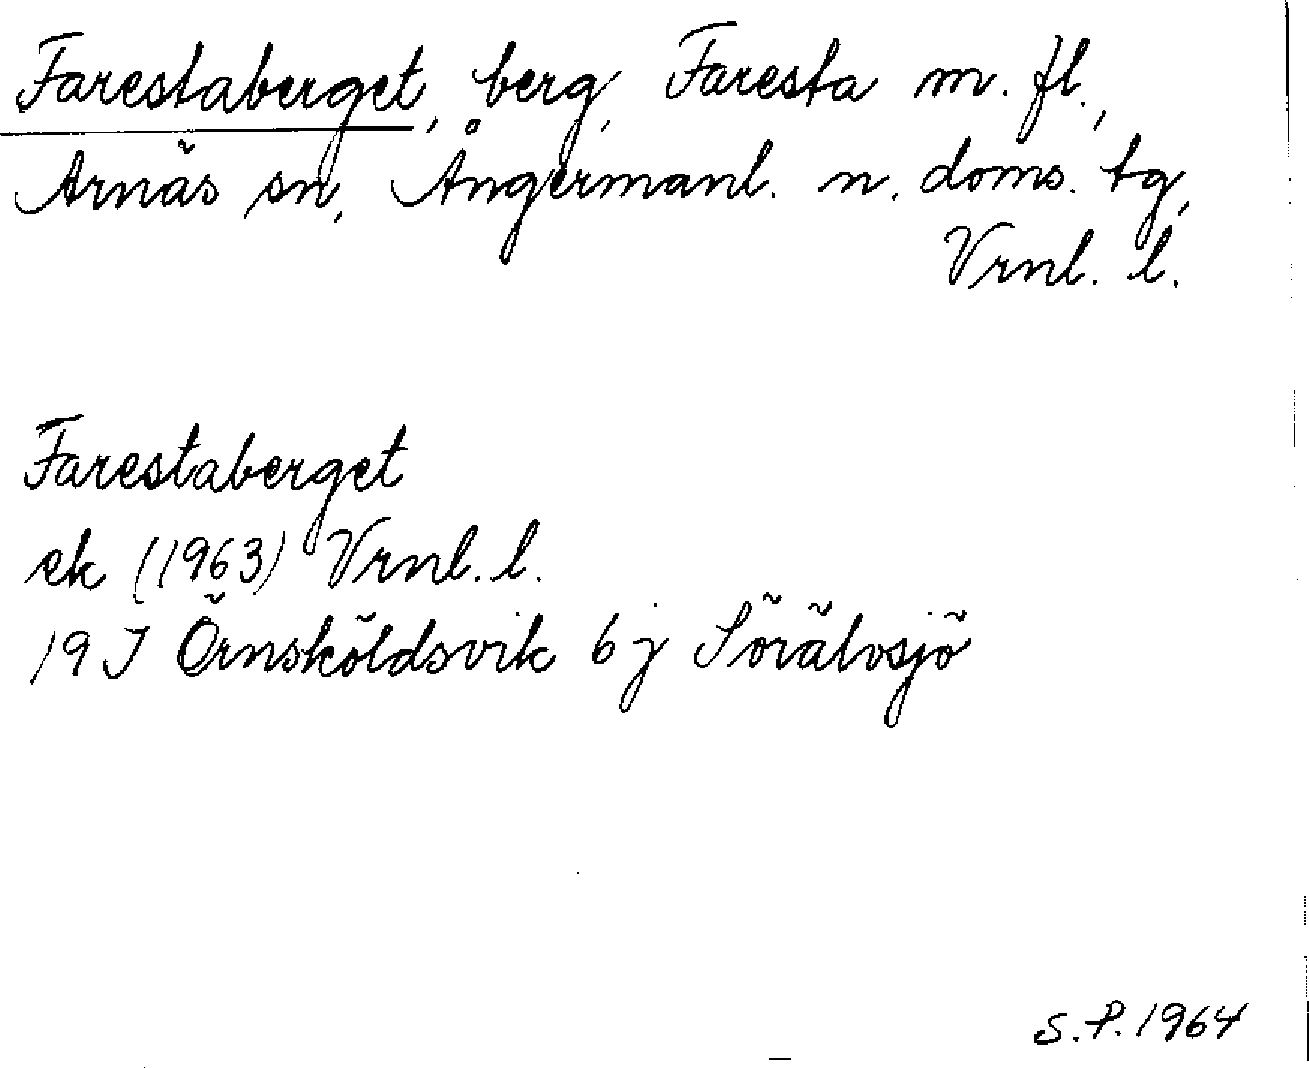 Farestaberget, berg, Faresta m. fl.,
Arnäs sn, Ångermanl. n. doms. tg,
Vrnl. l.
Farestaberget
ek (1963) Vrnl. l.
19 J Örnsköldsvik 6 j Sörälvsjö
S.P. 1964